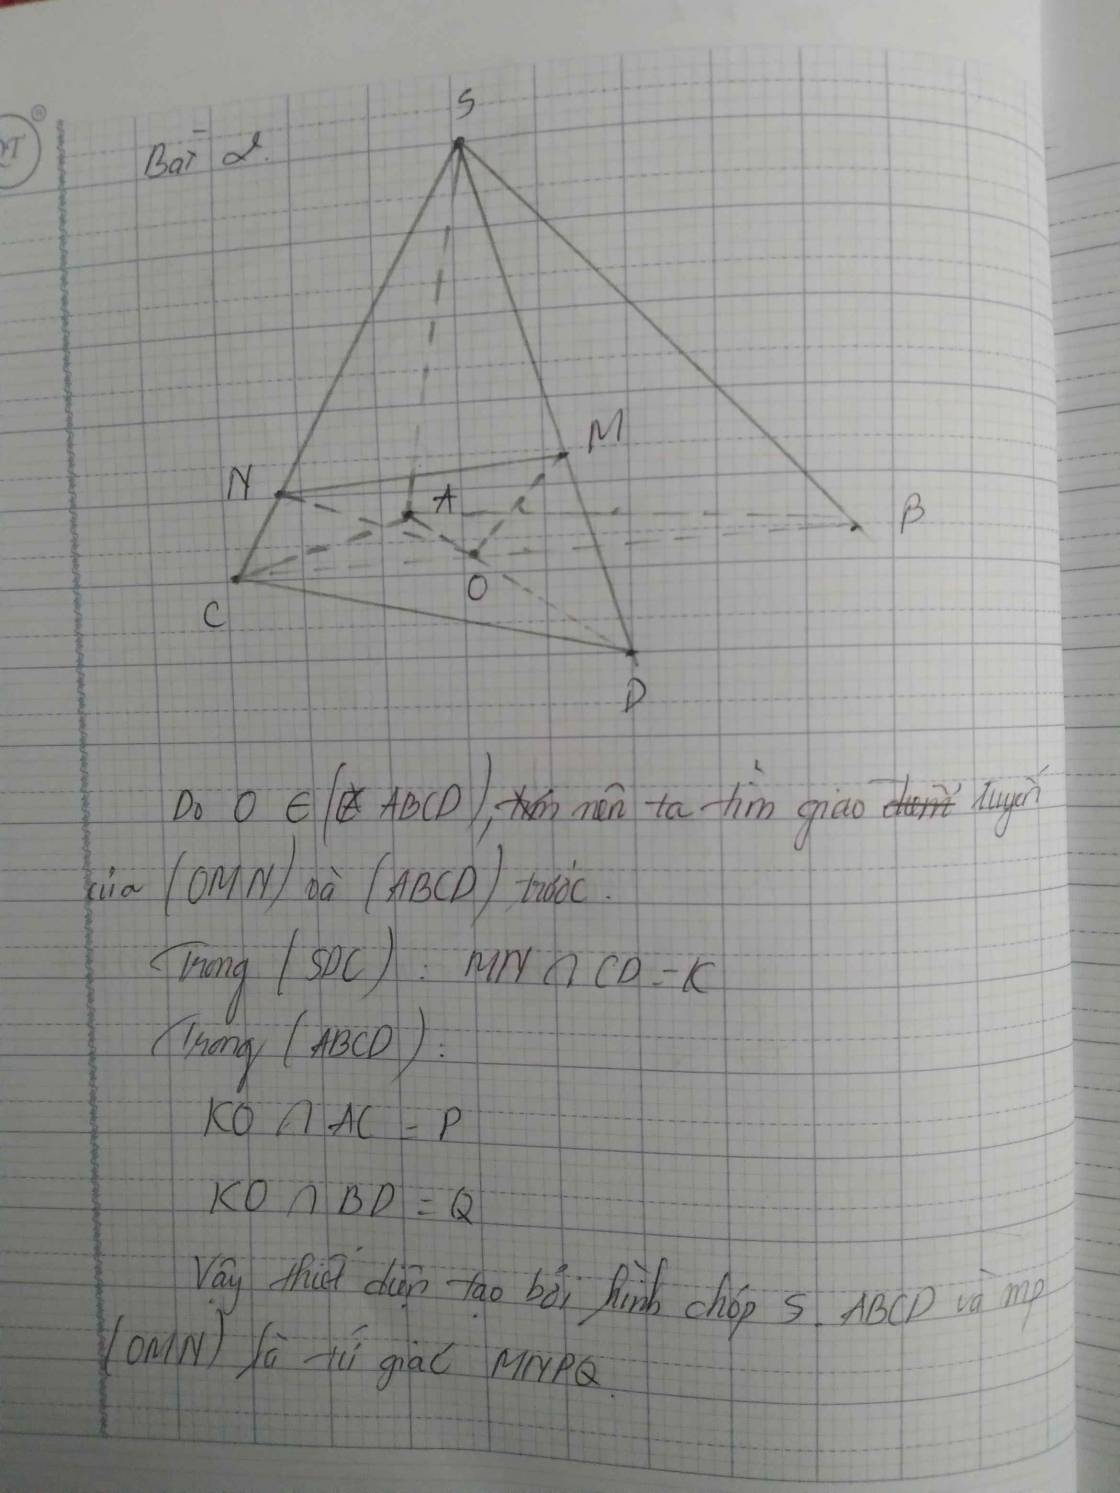 Bài 2.
S
M
N
A
B
O
C
D
Do O ∈ (ABCD), nên ta tìm giao tuyến
của (OMN) và (ABCD) trước.
Trong (SDC): MN ∩ CD = K
Trong (ABCD):
KO ∩ AC = P
KO ∩ BD = Q
Vậy thiết diện tạo bởi hình chóp S.ABCD và mp
(OMN) là tứ giác MNPQ.